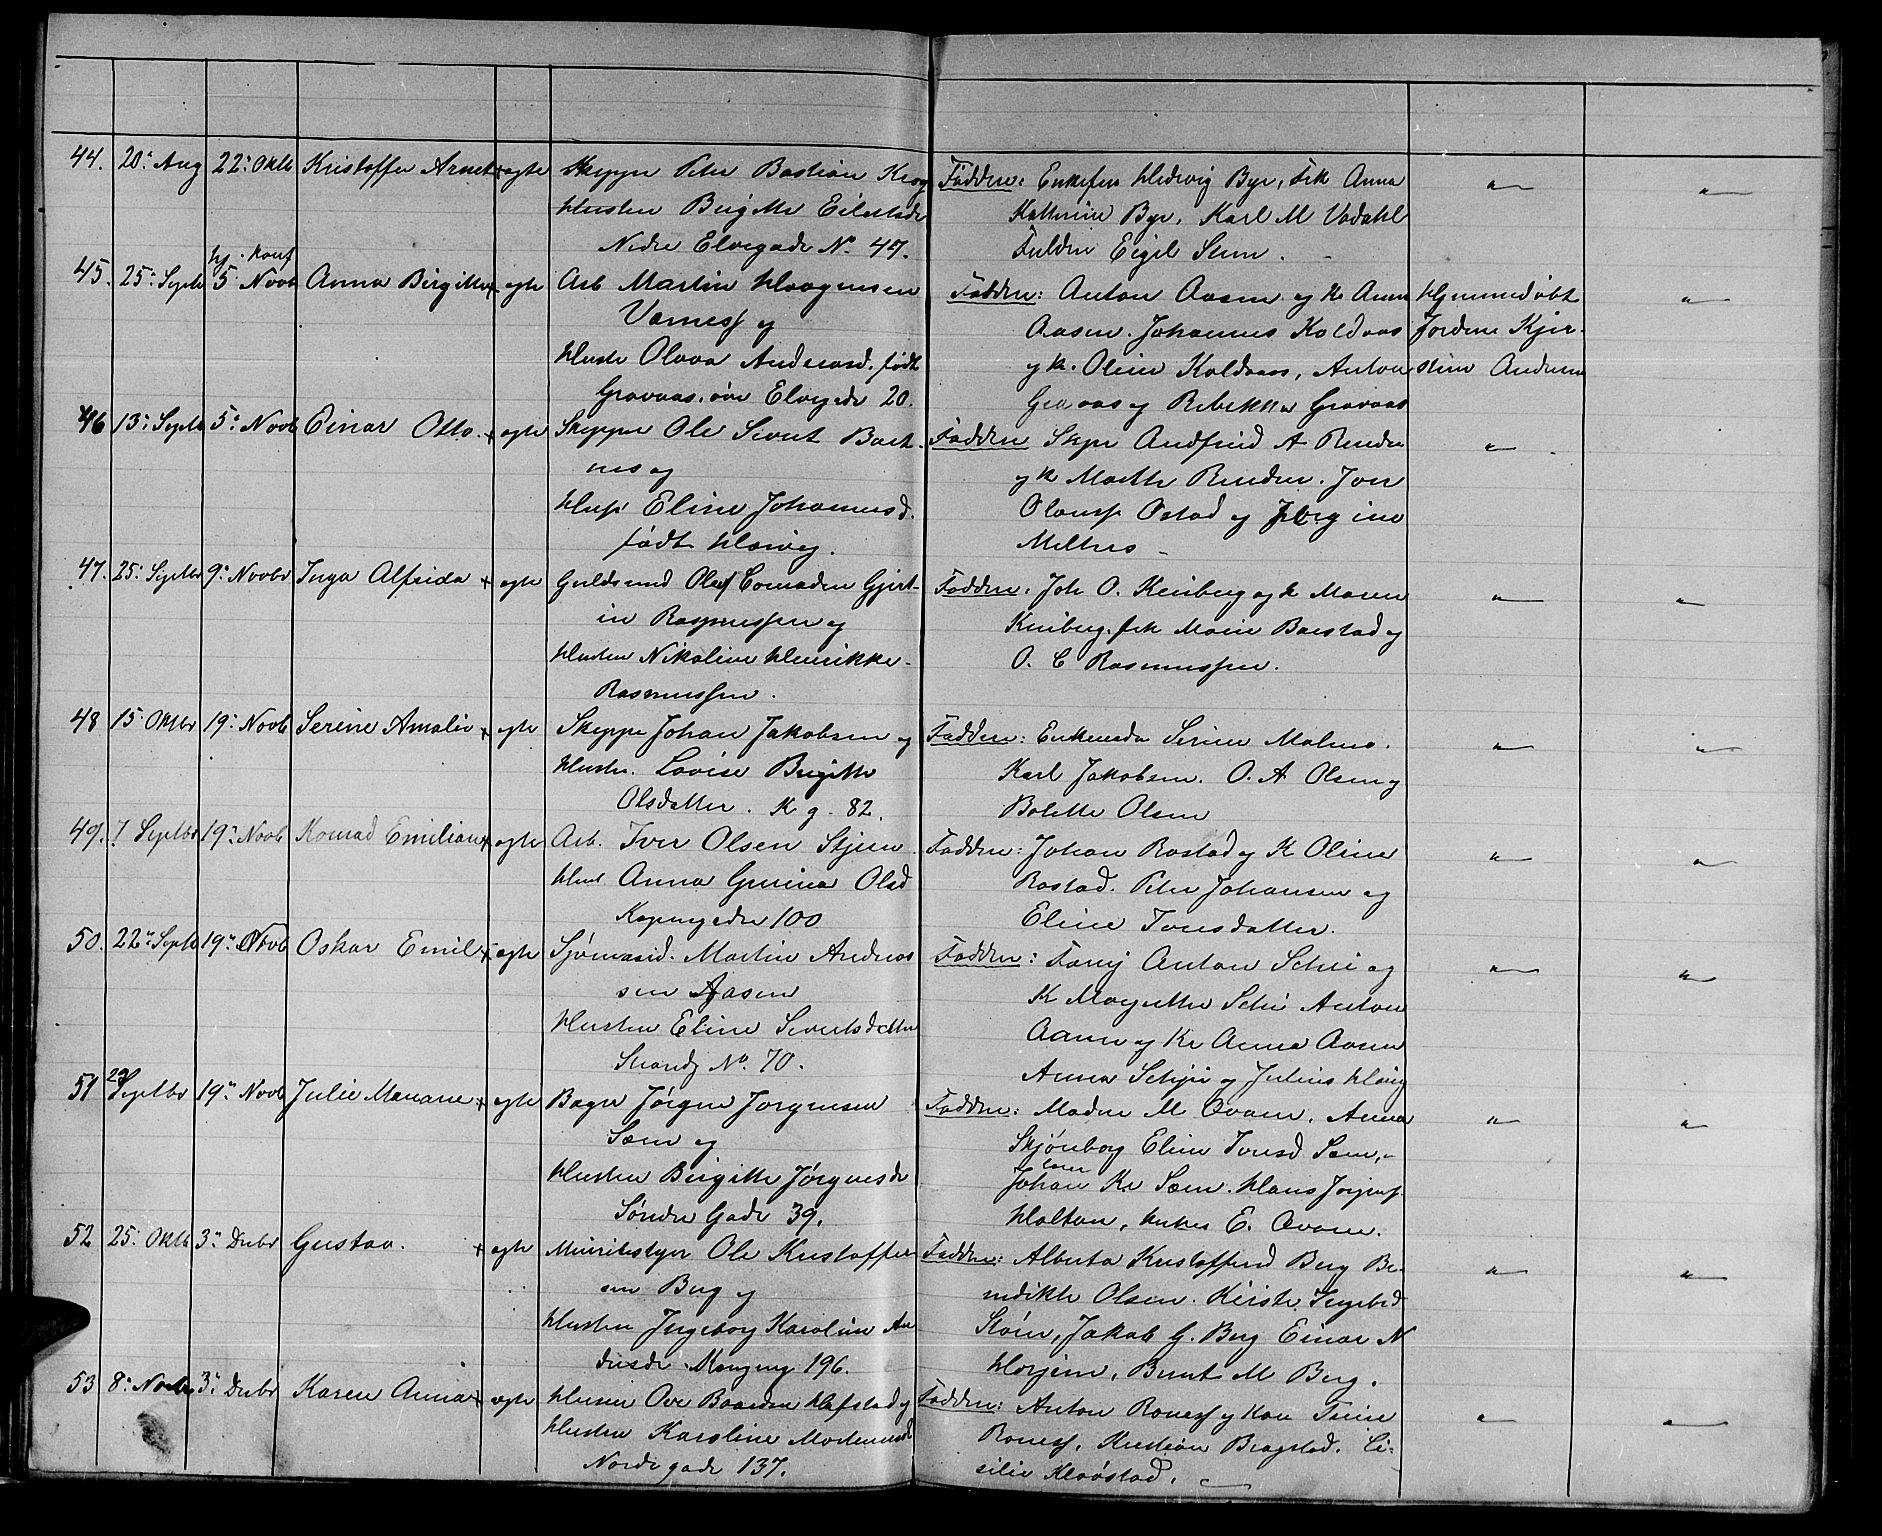 44. 20. Aug 22. Oktb Kristoffer Arnet + ægte Skipper Peter Bastian Krog
Hustru Birgitte Eilertsdr
Nedre Elvegade No. 47.
Faddere: Enkefru Hedevig Bye, Frk Anna
Katherine Bye, Karl M Vadahl
Eigil Stene.
45. 25. Septb hj. konf 5. Novb Anna Birgitte + ægte Arb Martin Haagensen
Værness og
Hustr Olava Andersd. født
Gravaas. øvre Elvegade 20.
Faddere: Anton Aasen og K. Anna
Aasen. Johannes Koldaas
og K. Oline Koldaas, Anton
Gravaas og Rebekka Gravaas
Hjemmedøbt
Jordem Kjer-
stine Andersen
46 13. Septb 5. Novb Einar Otto. + ægte Skipper Ole Sivert Bart-
nes og
Hust Eline Johannesd.
født Hærvig.
Faddere Skpr Andfind A Renden
og K Marthe Renden. Jon
Olauss Ostad og Jørgine
Melhus
47. 25. Septbr 9. Novbr Inga Alfrida + ægte Guldsmed Olaf Conradin Gjert-
in Rasmussen og
Hustru Nikoline Henrikke
Rasmussen.
Faddere: Joh O. Reinberg og K Maren
Reinberg. frk Marie Barstad og
O. C Rasmussen.
48 15. Oktbr 19. Novb Serine Amalie + ægte Skipper Johan Jakobsen og
Hustr. Lovise Birgitte
Olsdatter. K g. 82.
Faddere: Enkemda Serine Malmo.
Karl Jakobsen. O. A Olsen og
Bolette Olsen
49. 7 Septbr 19. Novb Konrad Emilian + ægte Arb. Iver Olsen Stjern
Hust Anna Gurina Olsd
Kongensgaden 100
Faddere: Johan Rostad og K Oline
Rostad. Peter Johansen og
Eline Tonsdatter.
50. 22. Septb 19. Novb Oskar Emil + ægte Sjømand. Martin Andreas
sen Aasen
Hustru Eline Sivertsdatter
Strandg No. 70.
Faddere: Anton Schei og
K Margrethe Schei Anton
Aasen og K Anna Aasen
Anna Schjei og Julius Haug
51 29 Septbr 19. Novb Julie Mariane. + ægte Bager Jørgen Jørgensen
Sæm og
Hustru Birgitte Jørgensdr
Søndre Gade 39.
Faddere: Madm M Qvam, Anna
Skjønborg Eline Tonsd Sem,
Johan Kr Sæm. Hans Jørgens
Holtan, E. Qvam.
52 25. Oktb 3. Decbr Gustav. + ægte Ministestyr Ole Kristoffer
sen Berg og
Hustru Ingeborg Karoline An
dresdr Kongensg 196.
Faddere: Alberta Kristoffersd Berg Be-
nedikte Olsen. Kirsti Ingebrd
Støre, Jakob G. Berg Einar N
Hojem, Bernt M Berg.
53 8. Novbr 3. Decbr Karen Anna + ægte Husm Ove Baardsen Hafstad og
Hustru Karoline Mortensd
Nordregade 137.
Faddere: Anton Roness og Kone Trine
Roness, Kristian Bragstad. Ce-
silie Kløvstad.